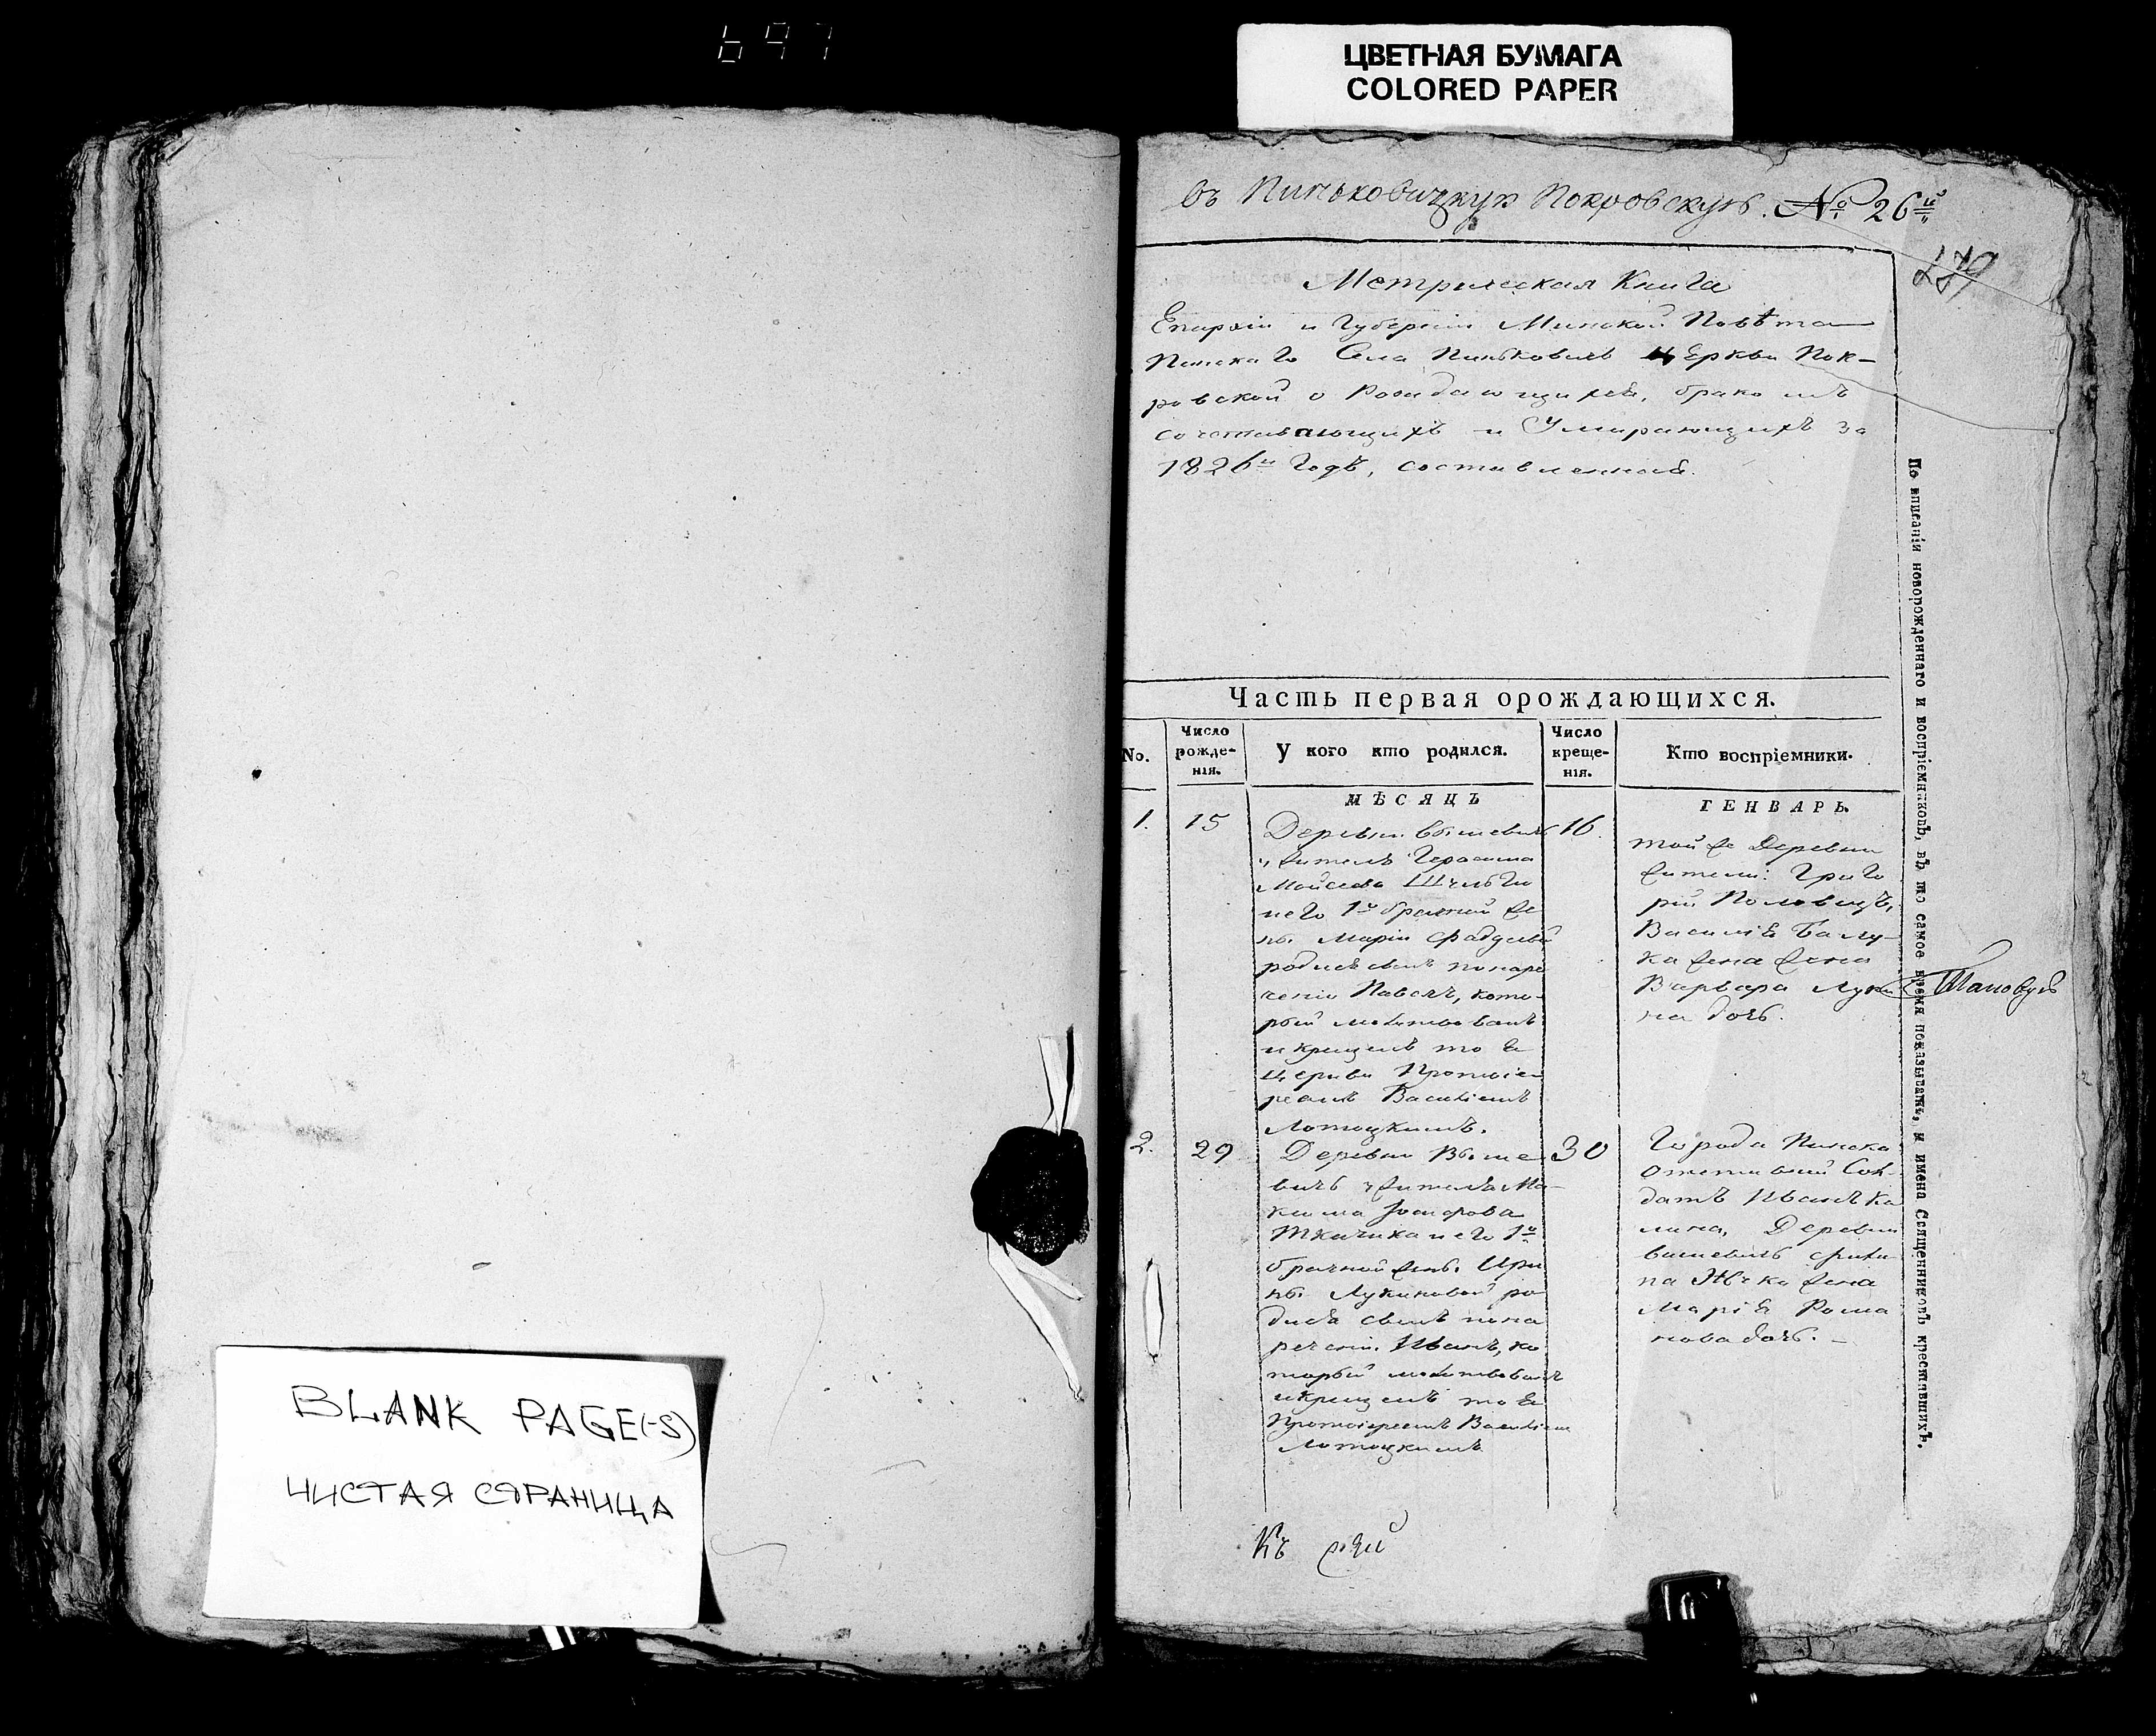 697
ЦВЕТНАЯ БУМАГА
COLORED PAPER
въ Пиньковицкую Покровскую. № 26й
279
Метрическая Книга
Епархіи и Губерніи Минской Повѣта
Пинскаго Села Пиньковичь Церкви Пок-
ровской о Рождающихся, бракомъ
сочетавающихъ и Умирающихъ за
1826й Годъ, составленная.
Часть первая орождающихся.
No.
Число рожде-нія.
У кого кто родился.
Число креще-нія.
Кто воспріемники.
МѢСЯЦЪ
ГЕНВАРЬ
1.
15
Деревни Вышевичь
жителъ Герасима
Мойсеева
него 1о брачной же
ны Маріи
родися сынъ понаре
ченію Павелъ, кото-
рый молитвованъ
и крещенъ тоя
Церкви Протоіе-
реемъ Василіемъ
Лотоцкимъ.
16.
той же Деревни
жители: Григо
рій Половецъ,
Василія
ка жена
Варвара
на дочь.
2.
29
Деревни Выше
вичь жителя Ма-
ксима Іосифова
Ткачика и его 1о
брачной жены Ири
ны Лукиновой ро
дися сынъ пона
реченію Иванъ, ко
торый молитвованъ
и крещенъ тоя
Протоіереемъ Василіем
Лотоцкимъ
30
Города Пинска
Отставный Сол-
датъ Иванъ Ка
лина, Деревни
вышевичь
жена
Марія Рома
нова дочь. -
Къ сей
По вписаніи новорожденнаго и воспріемниковъ, въ то самое время показывать, и имена Священниковъ крестившихъ.
BLANK PAGE(-S)
ЧИСТАЯ СТРАНИЦА